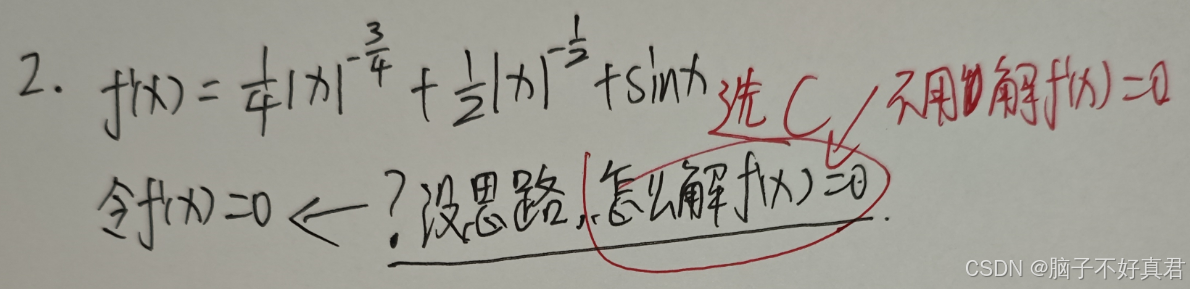 2. f'(x) = 1/4|x|^{-3/4} + 1/2|x|^{-1/2} + sinx 选C 不用解f'(x)=0
令f'(x)=0 ← ? 没思路,怎么解f'(x)=0.
CSDN @脑子不好真君